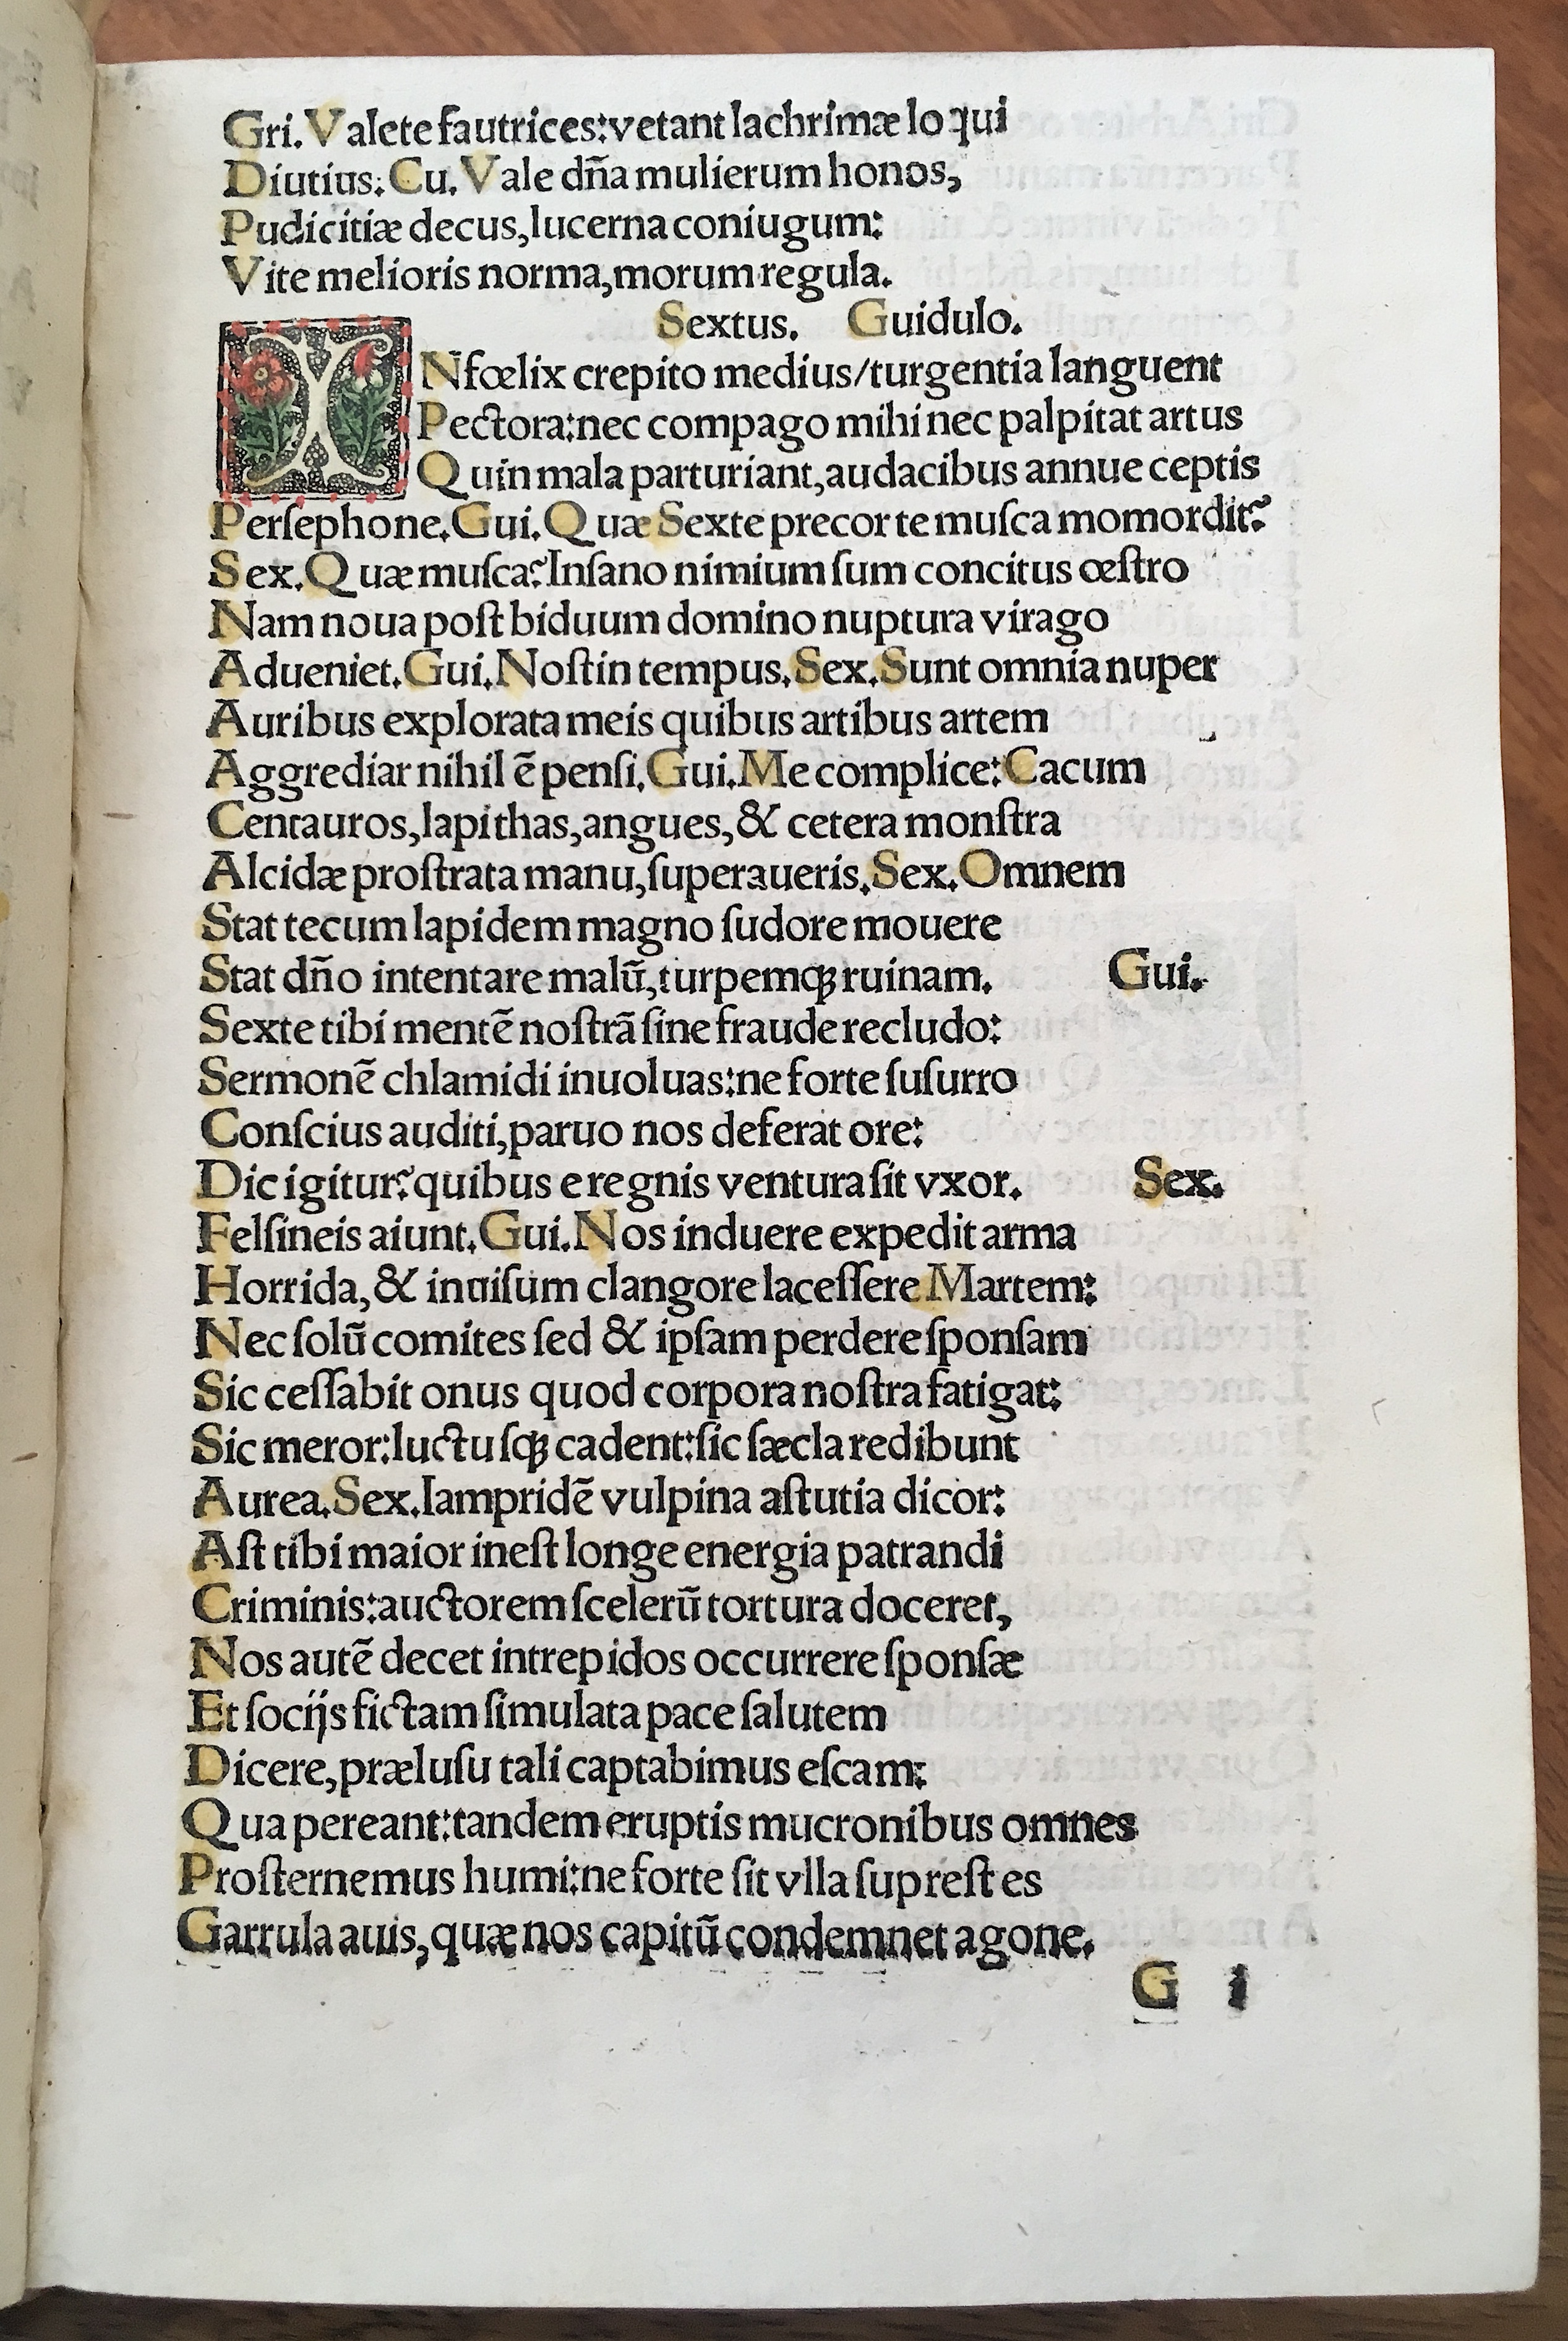 Gri. Valete fautrices: vetant lachrimæ loqui
Diutius: Cu. Vale dña mulierum honos,
Pudicitiæ decus, lucerna coniugum:
Vite melioris norma, morum regula.
Sextus. Guidulo.
INfœlix crepito medius/turgentia languent
Pectora: nec compago mihi nec palpitat artus
Quin mala parturiant, audacibus annue ceptis
Perſephone. Gui. Quæ Sexte precor te muſca momordit?
Sex. Quæ muſca? Inſano nimium ſum concitus œſtro
Nam noua poſt biduum domino nuptura virago
Adueniet. Gui. Noſtin tempus. Sex. Sunt omnia nuper
Auribus explorata meis quibus artibus artem
Aggrediar nihil ẽ penſi. Gui. Me complice: Cacum
Centauros, lapithas, angues, & cetera monſtra
Alcidæ proſtrata manu, ſuperaueris. Sex. Omnem
Stat tecum lapidem magno ſudore mouere
Stat dño intentare malũ, turpemqꝫ ruinam. Gui.
Sexte tibi mentẽ noſtrã ſine fraude recludo:
Sermonẽ chlamidi inuoluas: ne forte ſuſurro
Conſcius auditi, paruo nos deferat ore:
Dic igitur? quibus e regnis ventura ſit vxor. Sex.
Felſineis aiunt. Gui. Nos induere expedit arma
Horrida, & inuiſum clangore laceſſere Martem:
Nec ſolũ comites ſed & ipſam perdere ſponſam
Sic ceſſabit onus quod corpora noſtra fatigat:
Sic meror: luctuſqꝫ cadent: ſic ſæcla redibunt
Aurea. Sex. Iampridẽ vulpina aſtutia dicor:
Aſt tibi maior ineſt longe energia patrandi
Criminis: auctorem ſcelerũ tortura doceret,
Nos autẽ decet intrepidos occurrere ſponſæ
Et ſocijs fictam ſimulata pace ſalutem
Dicere, præluſu tali captabimus eſcam:
Qua pereant: tandem eruptis mucronibus omnes
Proſternemus humi: ne forte ſit vlla ſupreſtes
Garrula auis, quæ nos capitũ condemnet agone.
G i